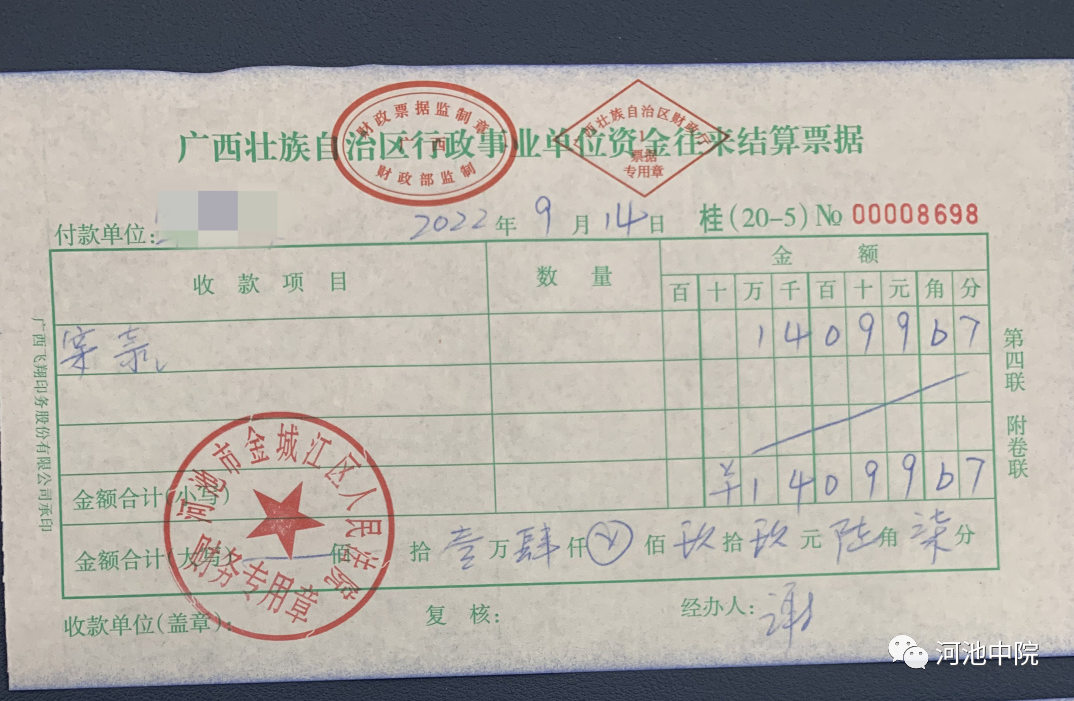 广西壮族自治区行政事业单位资金往来结算票据
财政票据监制章
广西
财政部监制
广西壮族自治区财政厅
1
票据
专用章
付款单位:
2022年9月14日
桂(20-5)№ 00008698
收款项目 数量 金额
百十万千百十元角分
案款 1409967
金额合计(小写) ¥1409967
金额合计(大写) 佰 拾 壹万肆仟 佰玖拾玖元陆角柒分
收款单位(盖章): 复核: 经办人:谢
河池市金城江区人民法院
财务专用章
第四联 附卷联
广西飞翔印务股份有限公司承印
河池中院